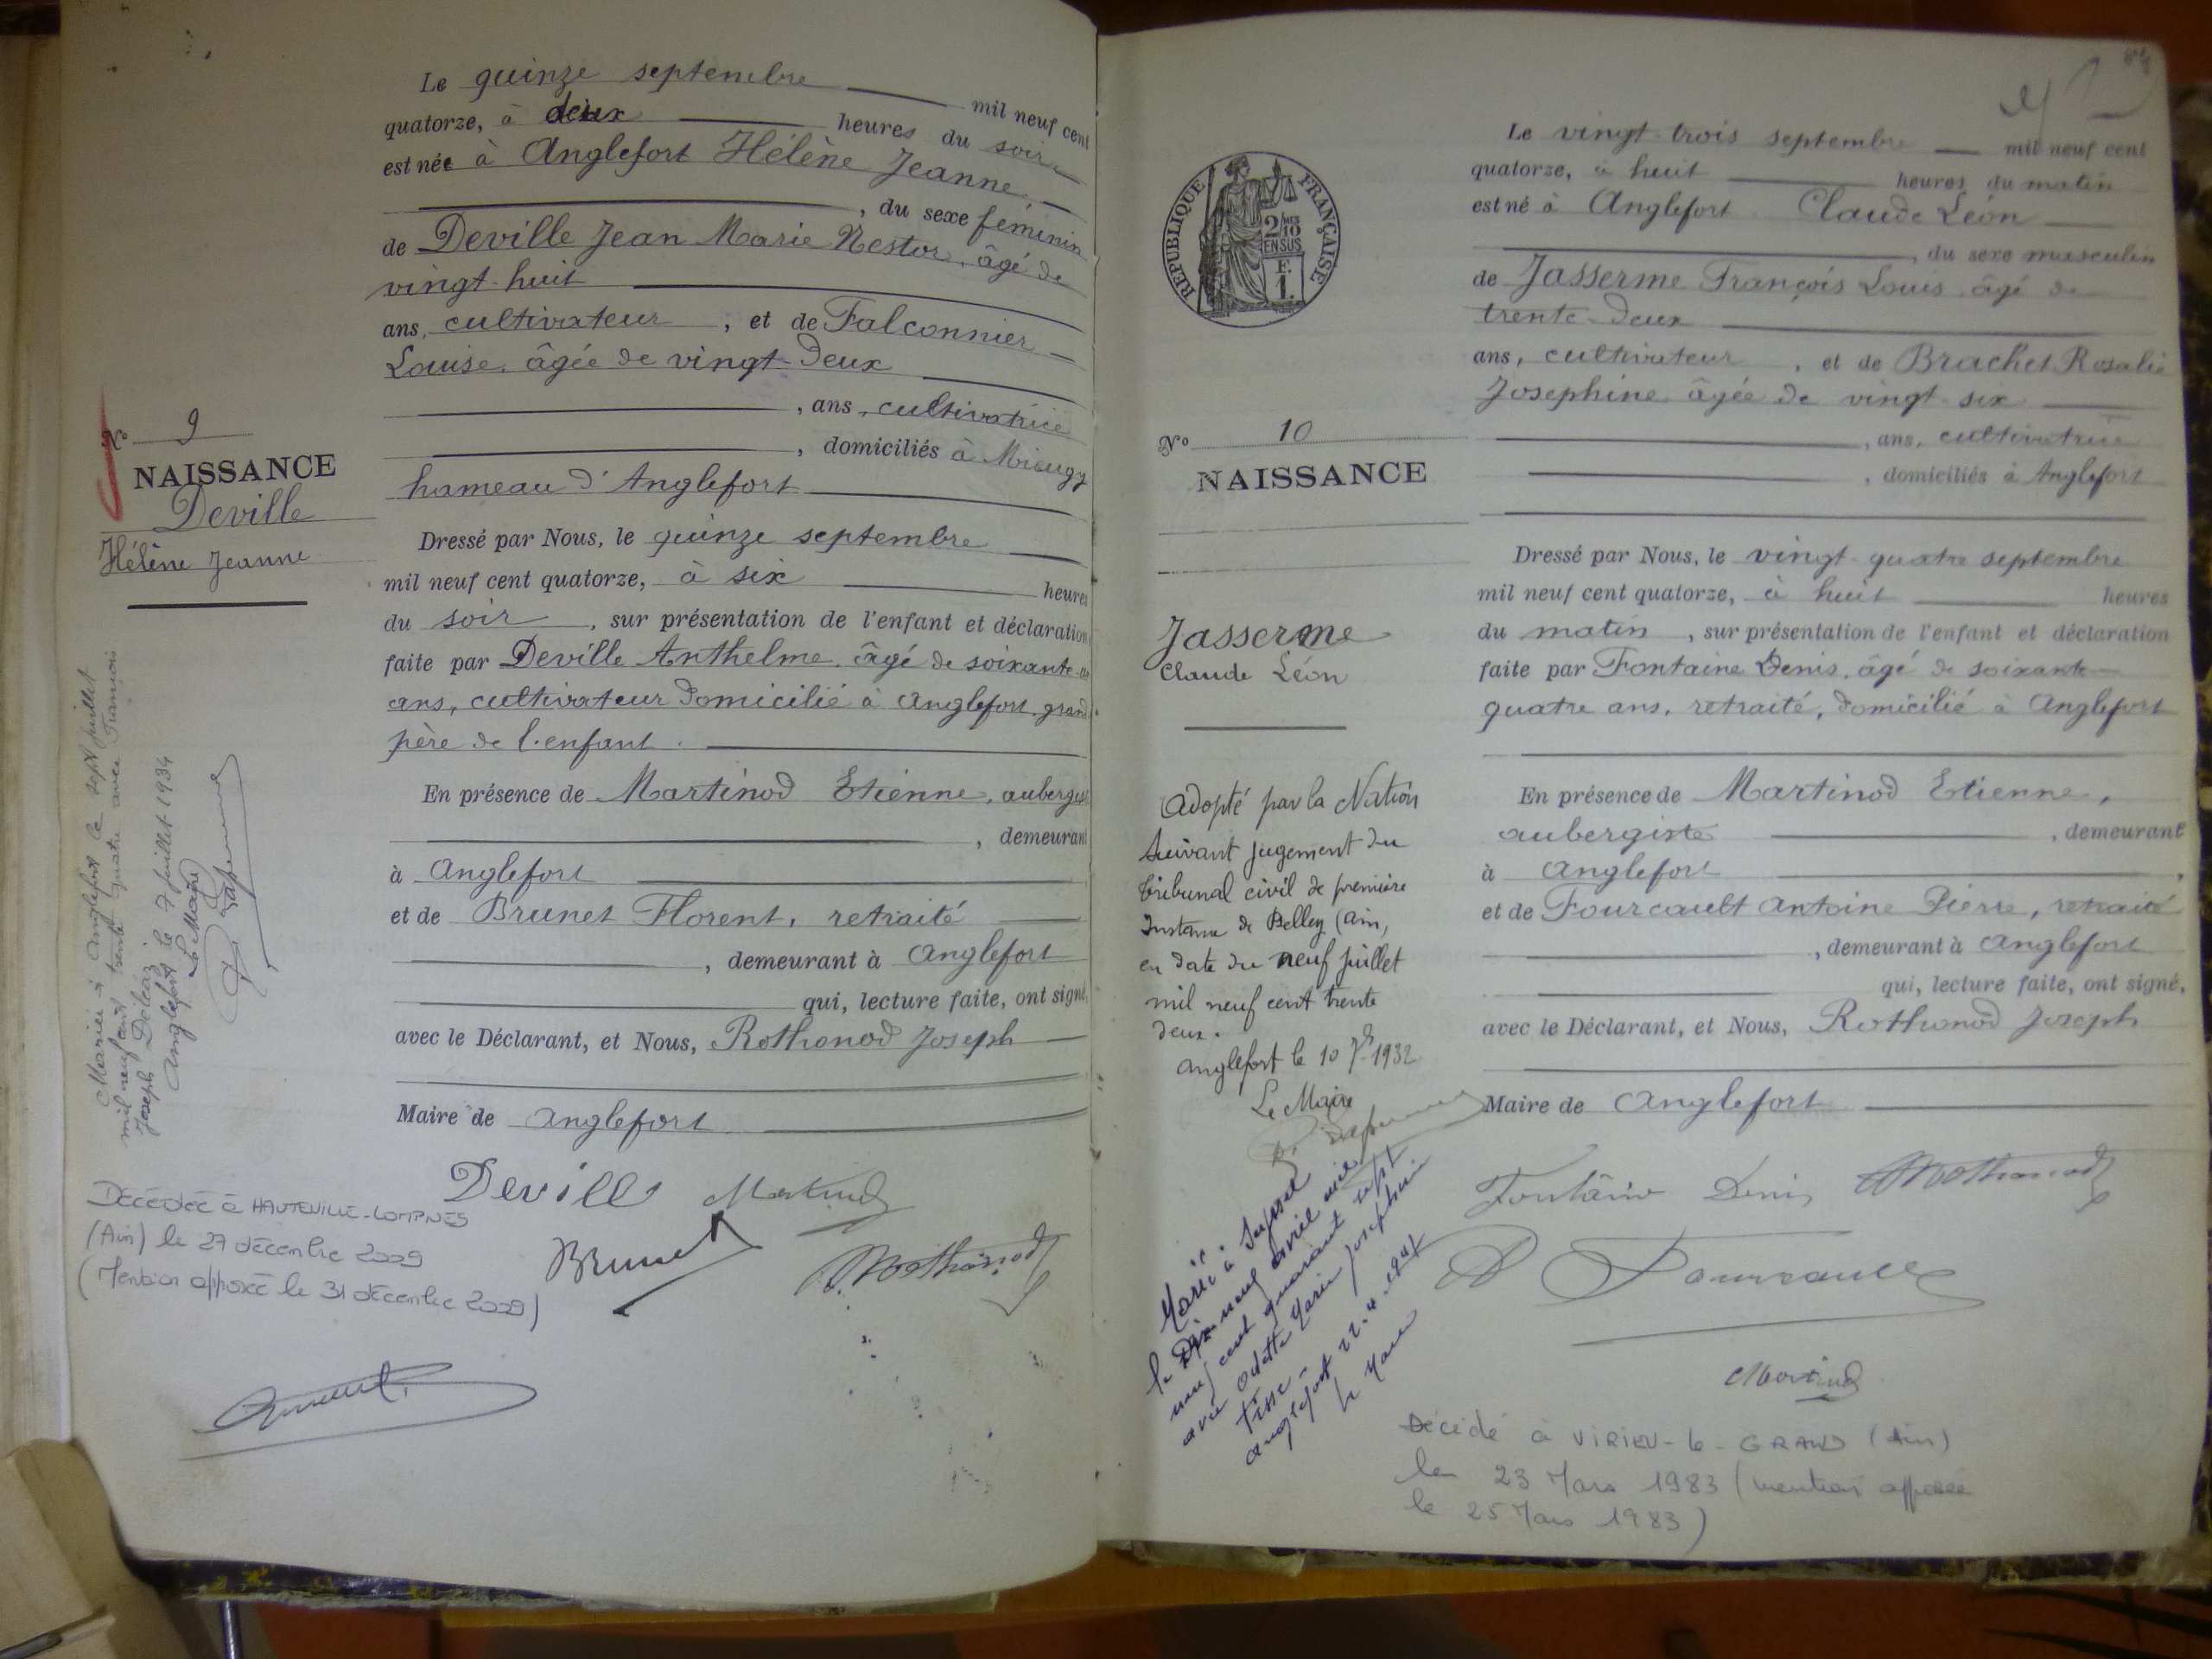 Le quinze septembre mil neuf cent
quatorze, à deux heures du soir
est née à Anglefort Hélène Jeanne
, du sexe féminin
de Deville Jean Marie Nestor, âgé de
vingt-huit
ans, cultivateur, et de Falconnier
Louise, âgée de vingt-deux
, ans, cultivatrice
, domiciliés à Mieugy
hameau d'Anglefort
Dressé par Nous, le quinze septembre
mil neuf cent quatorze, à six heures
du soir, sur présentation de l'enfant et déclaration
faite par Deville Anthelme, âgé de soixante-
ans, cultivateur domicilié à Anglefort, grand
père de l'enfant.
En présence de Martinod Etienne, aubergiste
, demeurant
à Anglefort
et de Brunet Florent, retraité
, demeurant à Anglefort
qui, lecture faite, ont signé,
avec le Déclarant, et Nous, Rothonod Joseph
Maire de Anglefort
Deville Martinod
Brunet Rothonod
No 9
NAISSANCE
Deville
Hélène Jeanne
Mariée à Anglefort le sept juillet
mil neuf cent trente quatre avec François
Joseph
Anglefort le 7 juillet 1934
Le Maire
Décédée à HAUTEVILLE-LOMPNES
(Ain) le 27 décembre 2009
(Mention apposée le 31 décembre 2009)
REPUBLIQUE FRANÇAISE
2/10 EN SUS
F. 1.
No 10
NAISSANCE
Jasserme
Claude Léon
Adopté par la Nation
suivant jugement du
tribunal civil de première
Instance de Belley (Ain,
en date du neuf juillet
mil neuf cent trente
deux.
Anglefort le 10 7bre 1932
Le Maire
Marié à Seyssel
le Dix neuf avril mil
neuf cent quarante sept
avec Odette Marie Joséphine
Anglefort 22.4.1947
Le Maire
Le vingt-trois septembre mil neuf cent
quatorze, à huit heures du matin
est né à Anglefort Claude Léon
, du sexe masculin
de Jasserme François Louis âgé de
trente-deux
ans, cultivateur, et de Brachet Rosalie
Josephine âgée de vingt-six
, ans, cultivatrice
, domiciliés à Anglefort
Dressé par Nous, le vingt-quatre septembre
mil neuf cent quatorze, à huit heures
du matin, sur présentation de l'enfant et déclaration
faite par Fontaine Denis, âgé de soixante-
quatre ans, retraité, domicilié à Anglefort
En présence de Martinod Etienne,
aubergiste, demeurant
à Anglefort,
et de Fourcault Antoine Pierre, retraité
, demeurant à Anglefort
qui, lecture faite, ont signé,
avec le Déclarant, et Nous, Rothonod Joseph
Maire de Anglefort
Fontaine Denis Rothonod
Fourcault
Martinod
Décédé à VIRIEU-le-GRAND (Ain)
le 23 Mars 1983 (mention apposée
le 25 Mars 1983)